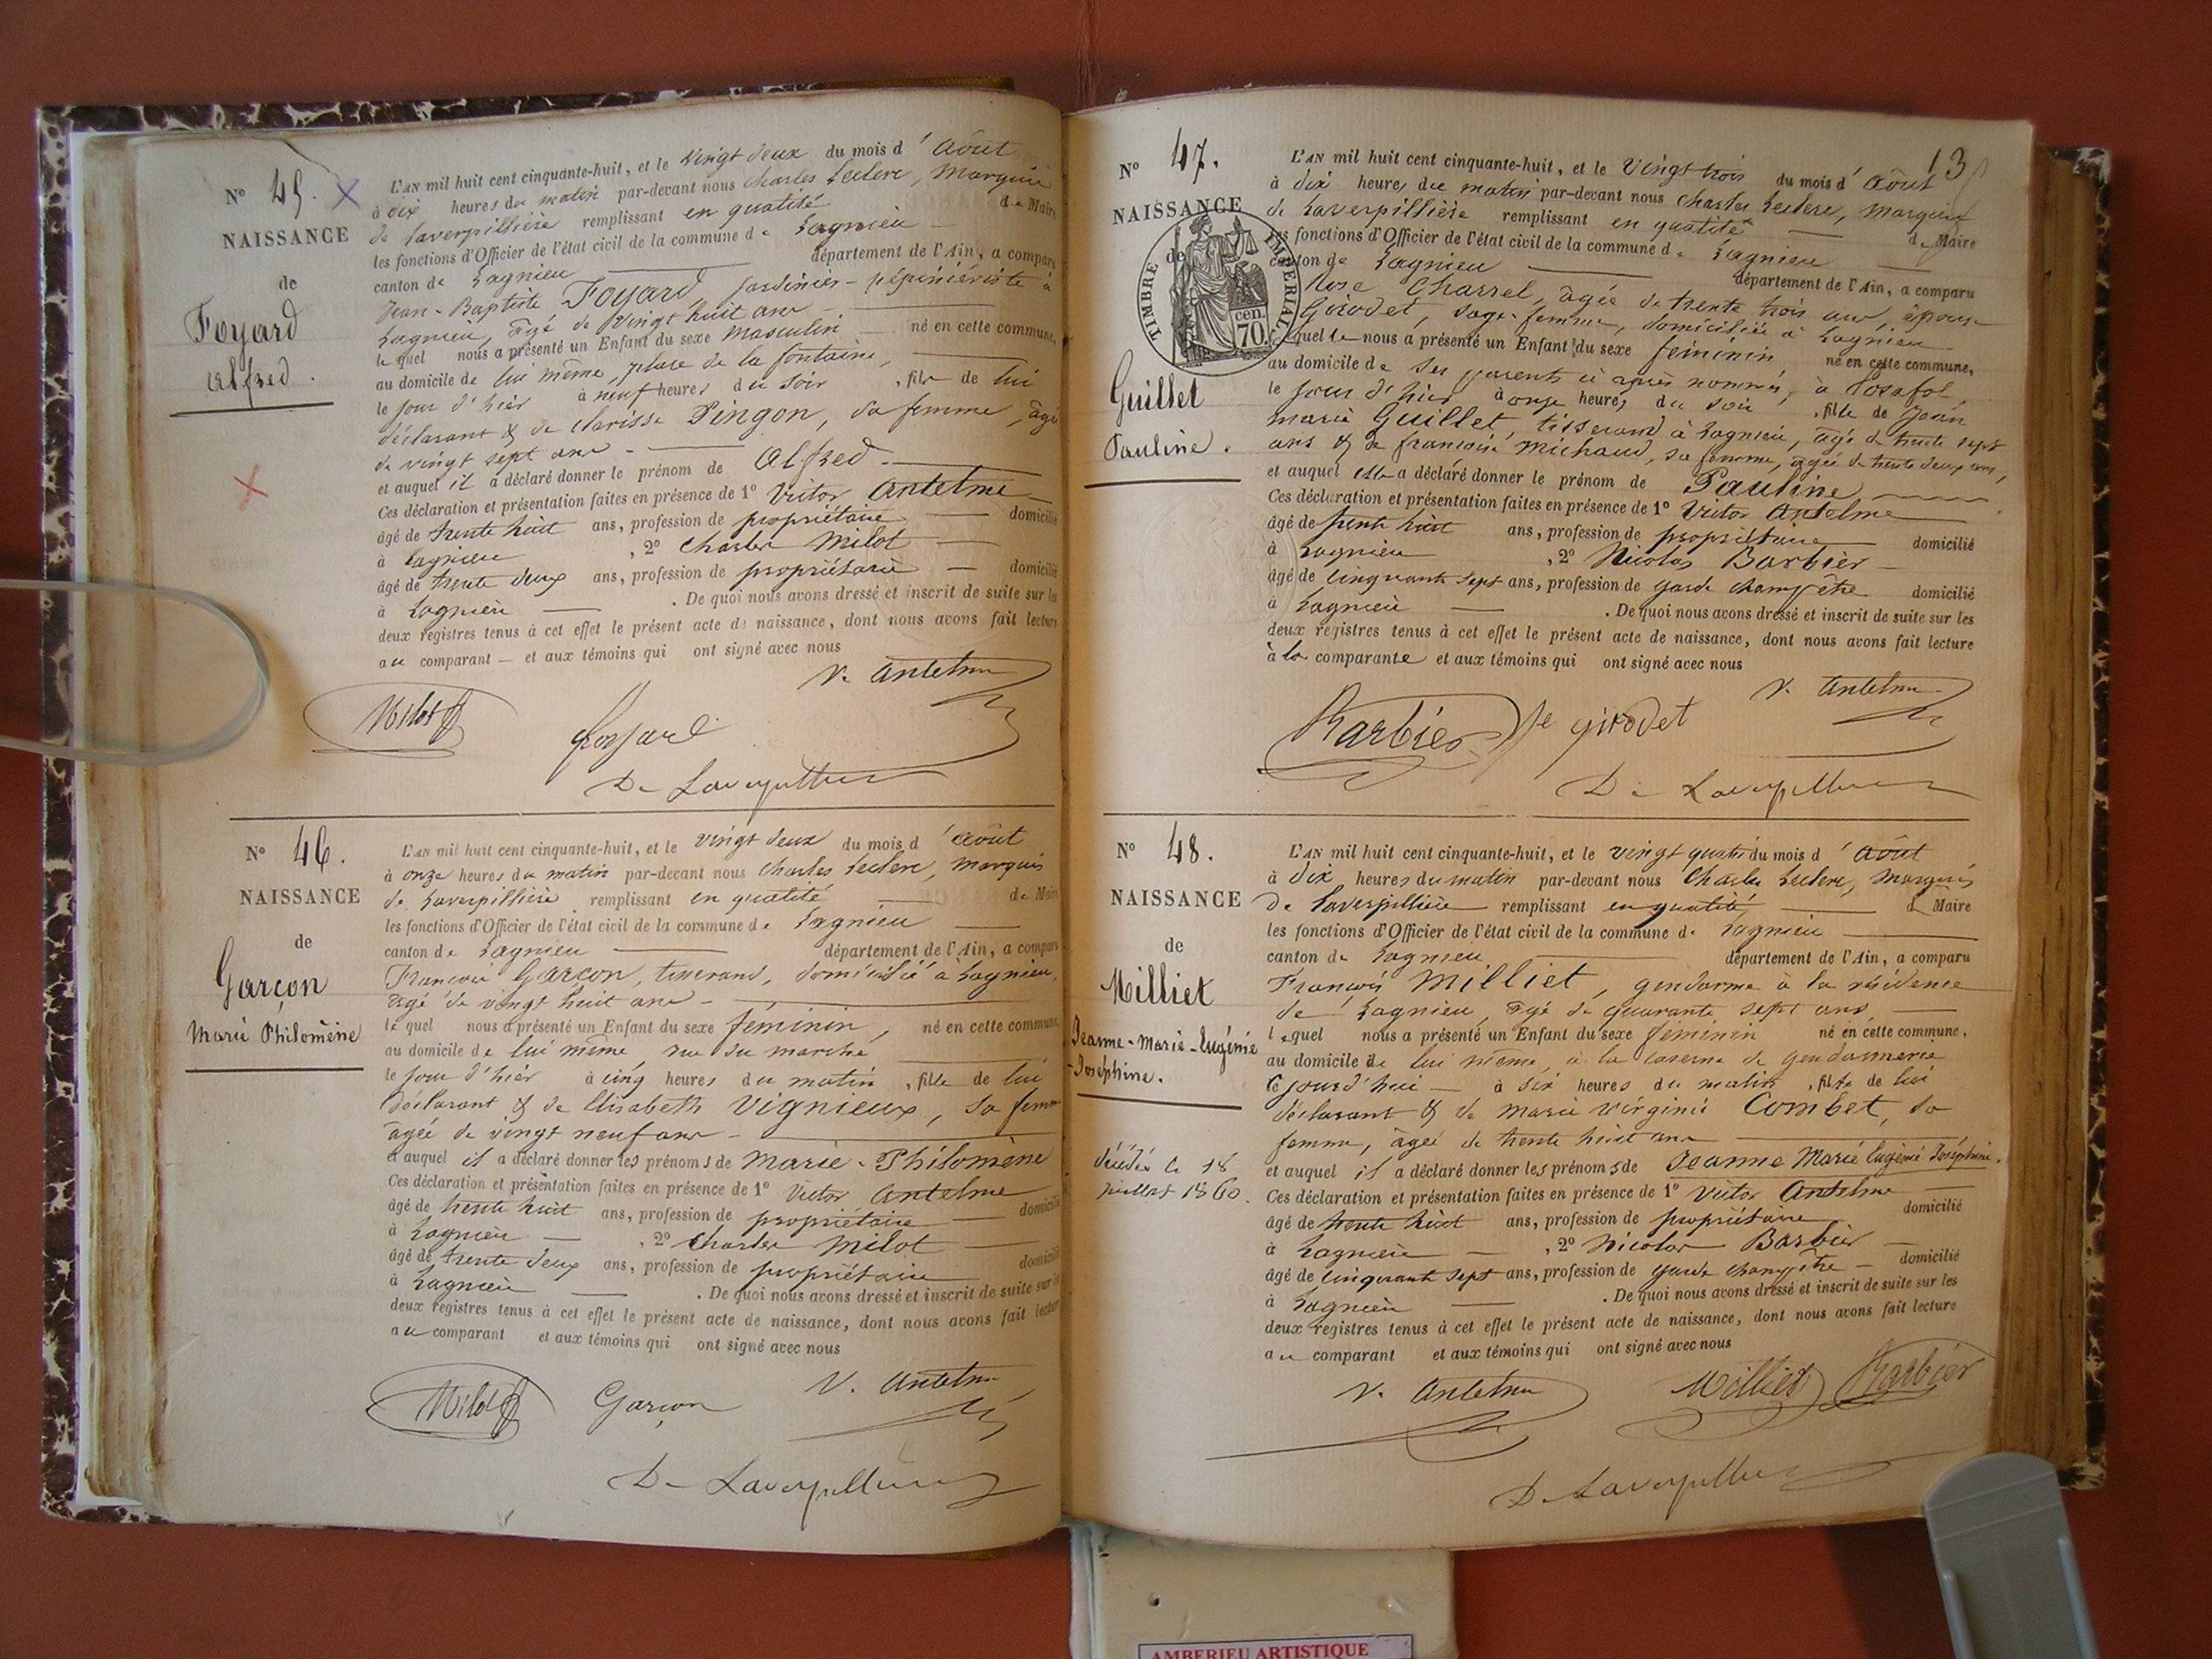 N° 45. X
NAISSANCE
de
Foyard
Alfred.
L'AN mil huit cent cinquante-huit, et le vingt deux du mois d'Aôut
à dix heures du matin par-devant nous Charles Leclerc, Marquis
de Laverpillière remplissant en qualité de Maire
les fonctions d'Officier de l'état civil de la commune de Lagnieu
canton de Lagnieu département de l'Ain, a comparu
Jean-Baptiste Foyard, jardinier-pépiniériste à
Lagnieu, âgé de vingt huit ans
lequel nous a présenté un Enfant du sexe masculin né en cette commune,
au domicile de lui même, place de la fontaine,
le jour d'hier à neuf heures du soir, fils de lui
déclarant & de Clarisse Pingon, sa femme, âgée
de vingt sept ans -
et auquel il a déclaré donner le prénom de Alfred
Ces déclaration et présentation faites en présence de 1° Victor Antelme
âgé de trente huit ans, profession de propriétaire domicilié
à Lagnieu, 2° Charles Milot
âgé de trente deux ans, profession de propriétaire domicilié
à Lagnieu. De quoi nous avons dressé et inscrit de suite sur les
deux registres tenus à cet effet le présent acte de naissance, dont nous avons fait lecture
au comparant et aux témoins qui ont signé avec nous
V. Antelme
Milot Foyard
De Laverpillière
N° 46.
NAISSANCE
de
Garçon
Marie Philomène
L'AN mil huit cent cinquante-huit, et le vingt deux du mois d'août
à onze heures du matin par-devant nous Charles Leclerc, Marquis
de Laverpillière remplissant en qualité de Maire
les fonctions d'Officier de l'état civil de la commune de Lagnieu
canton de Lagnieu département de l'Ain, a comparu
François Garçon, tisserand, domicilié à Lagnieu,
âgé de vingt huit ans -
lequel nous a présenté un Enfant du sexe féminin, né en cette commune,
au domicile de lui même, rue du marché
le jour d'hier à cinq heures du matin, fille de lui
déclarant & de Elisabeth Vignieux, sa femme
âgée de vingt neuf ans -
et auquel il a déclaré donner les prénoms de Marie-Philomène
Ces déclaration et présentation faites en présence de 1° Victor Antelme
âgé de trente huit ans, profession de propriétaire domicilié
à Lagnieu, 2° Charles Milot
âgé de trente deux ans, profession de propriétaire domicilié
à Lagnieu. De quoi nous avons dressé et inscrit de suite sur les
deux registres tenus à cet effet le présent acte de naissance, dont nous avons fait lecture
au comparant et aux témoins qui ont signé avec nous
Milot Garçon V. Antelme
De Laverpillière
13
N° 47.
NAISSANCE
de
TIMBRE IMPERIAL
cen. 70.
Guillet
Pauline.
L'AN mil huit cent cinquante-huit, et le vingt trois du mois d'Aôut
à dix heures du matin par-devant nous Charles Leclerc, Marquis
de Laverpillière remplissant en qualité de Maire
les fonctions d'Officier de l'état civil de la commune de Lagnieu
canton de Lagnieu département de l'Ain, a comparu
Rose Charrel, âgée de trente trois ans, épouse
Girodet, sage-femme, domiciliée à Lagnieu
laquelle nous a présenté un Enfant du sexe féminin né en cette commune,
au domicile de ses parents ci après nommés, à Posafol,
le jour d'hier, à onze heures du soir, fille de Jean
Marie Guillet, tisserand à Lagnieu, âgé de trente sept
ans & de françoise Michaud, sa femme, âgée de trente deux ans,
et auquel elle a déclaré donner le prénom de Pauline
Ces déclaration et présentation faites en présence de 1° Victor Antelme
âgé de trente huit ans, profession de propriétaire domicilié
à Lagnieu, 2° Nicolas Barbier
âgé de cinquante sept ans, profession de garde champêtre domicilié
à Lagnieu. De quoi nous avons dressé et inscrit de suite sur les
deux registres tenus à cet effet le présent acte de naissance, dont nous avons fait lecture
à la comparante et aux témoins qui ont signé avec nous
V. Antelme
Barbier fe girodet
De Laverpillière
N° 48.
NAISSANCE
de
Milliet
Jeanne-Marie-Eugénie
-Joséphine.
décédée le 18
juillet 1860.
L'AN mil huit cent cinquante-huit, et le vingt quatre du mois d'Août
à dix heures du matin par-devant nous Charles Leclerc, Marquis
de Laverpillière remplissant en qualité de Maire
les fonctions d'Officier de l'état civil de la commune de Lagnieu
canton de Lagnieu département de l'Ain, a comparu
François Milliet, gendarme à la résidence
de Lagnieu, âgé de quarante sept ans,
lequel nous a présenté un Enfant du sexe féminin né en cette commune,
au domicile de lui même, à la caserne de gendarmerie
ce jourd'hui à six heures du matin, fille de lui
déclarant & de Marie Virginie Combet, sa
femme, âgée de trente huit ans
et auquel il a déclaré donner les prénoms de Jeanne Marie Eugénie Joséphine.
Ces déclaration et présentation faites en présence de 1° Victor Antelme
âgé de trente huit ans, profession de propriétaire domicilié
à Lagnieu, 2° Nicolas Barbier
âgé de cinquante sept ans, profession de garde champêtre domicilié
à Lagnieu. De quoi nous avons dressé et inscrit de suite sur les
deux registres tenus à cet effet le présent acte de naissance, dont nous avons fait lecture
au comparant et aux témoins qui ont signé avec nous
V. Antelme Milliet Barbier
De Laverpillière
AMBERIEU ARTISTIQUE